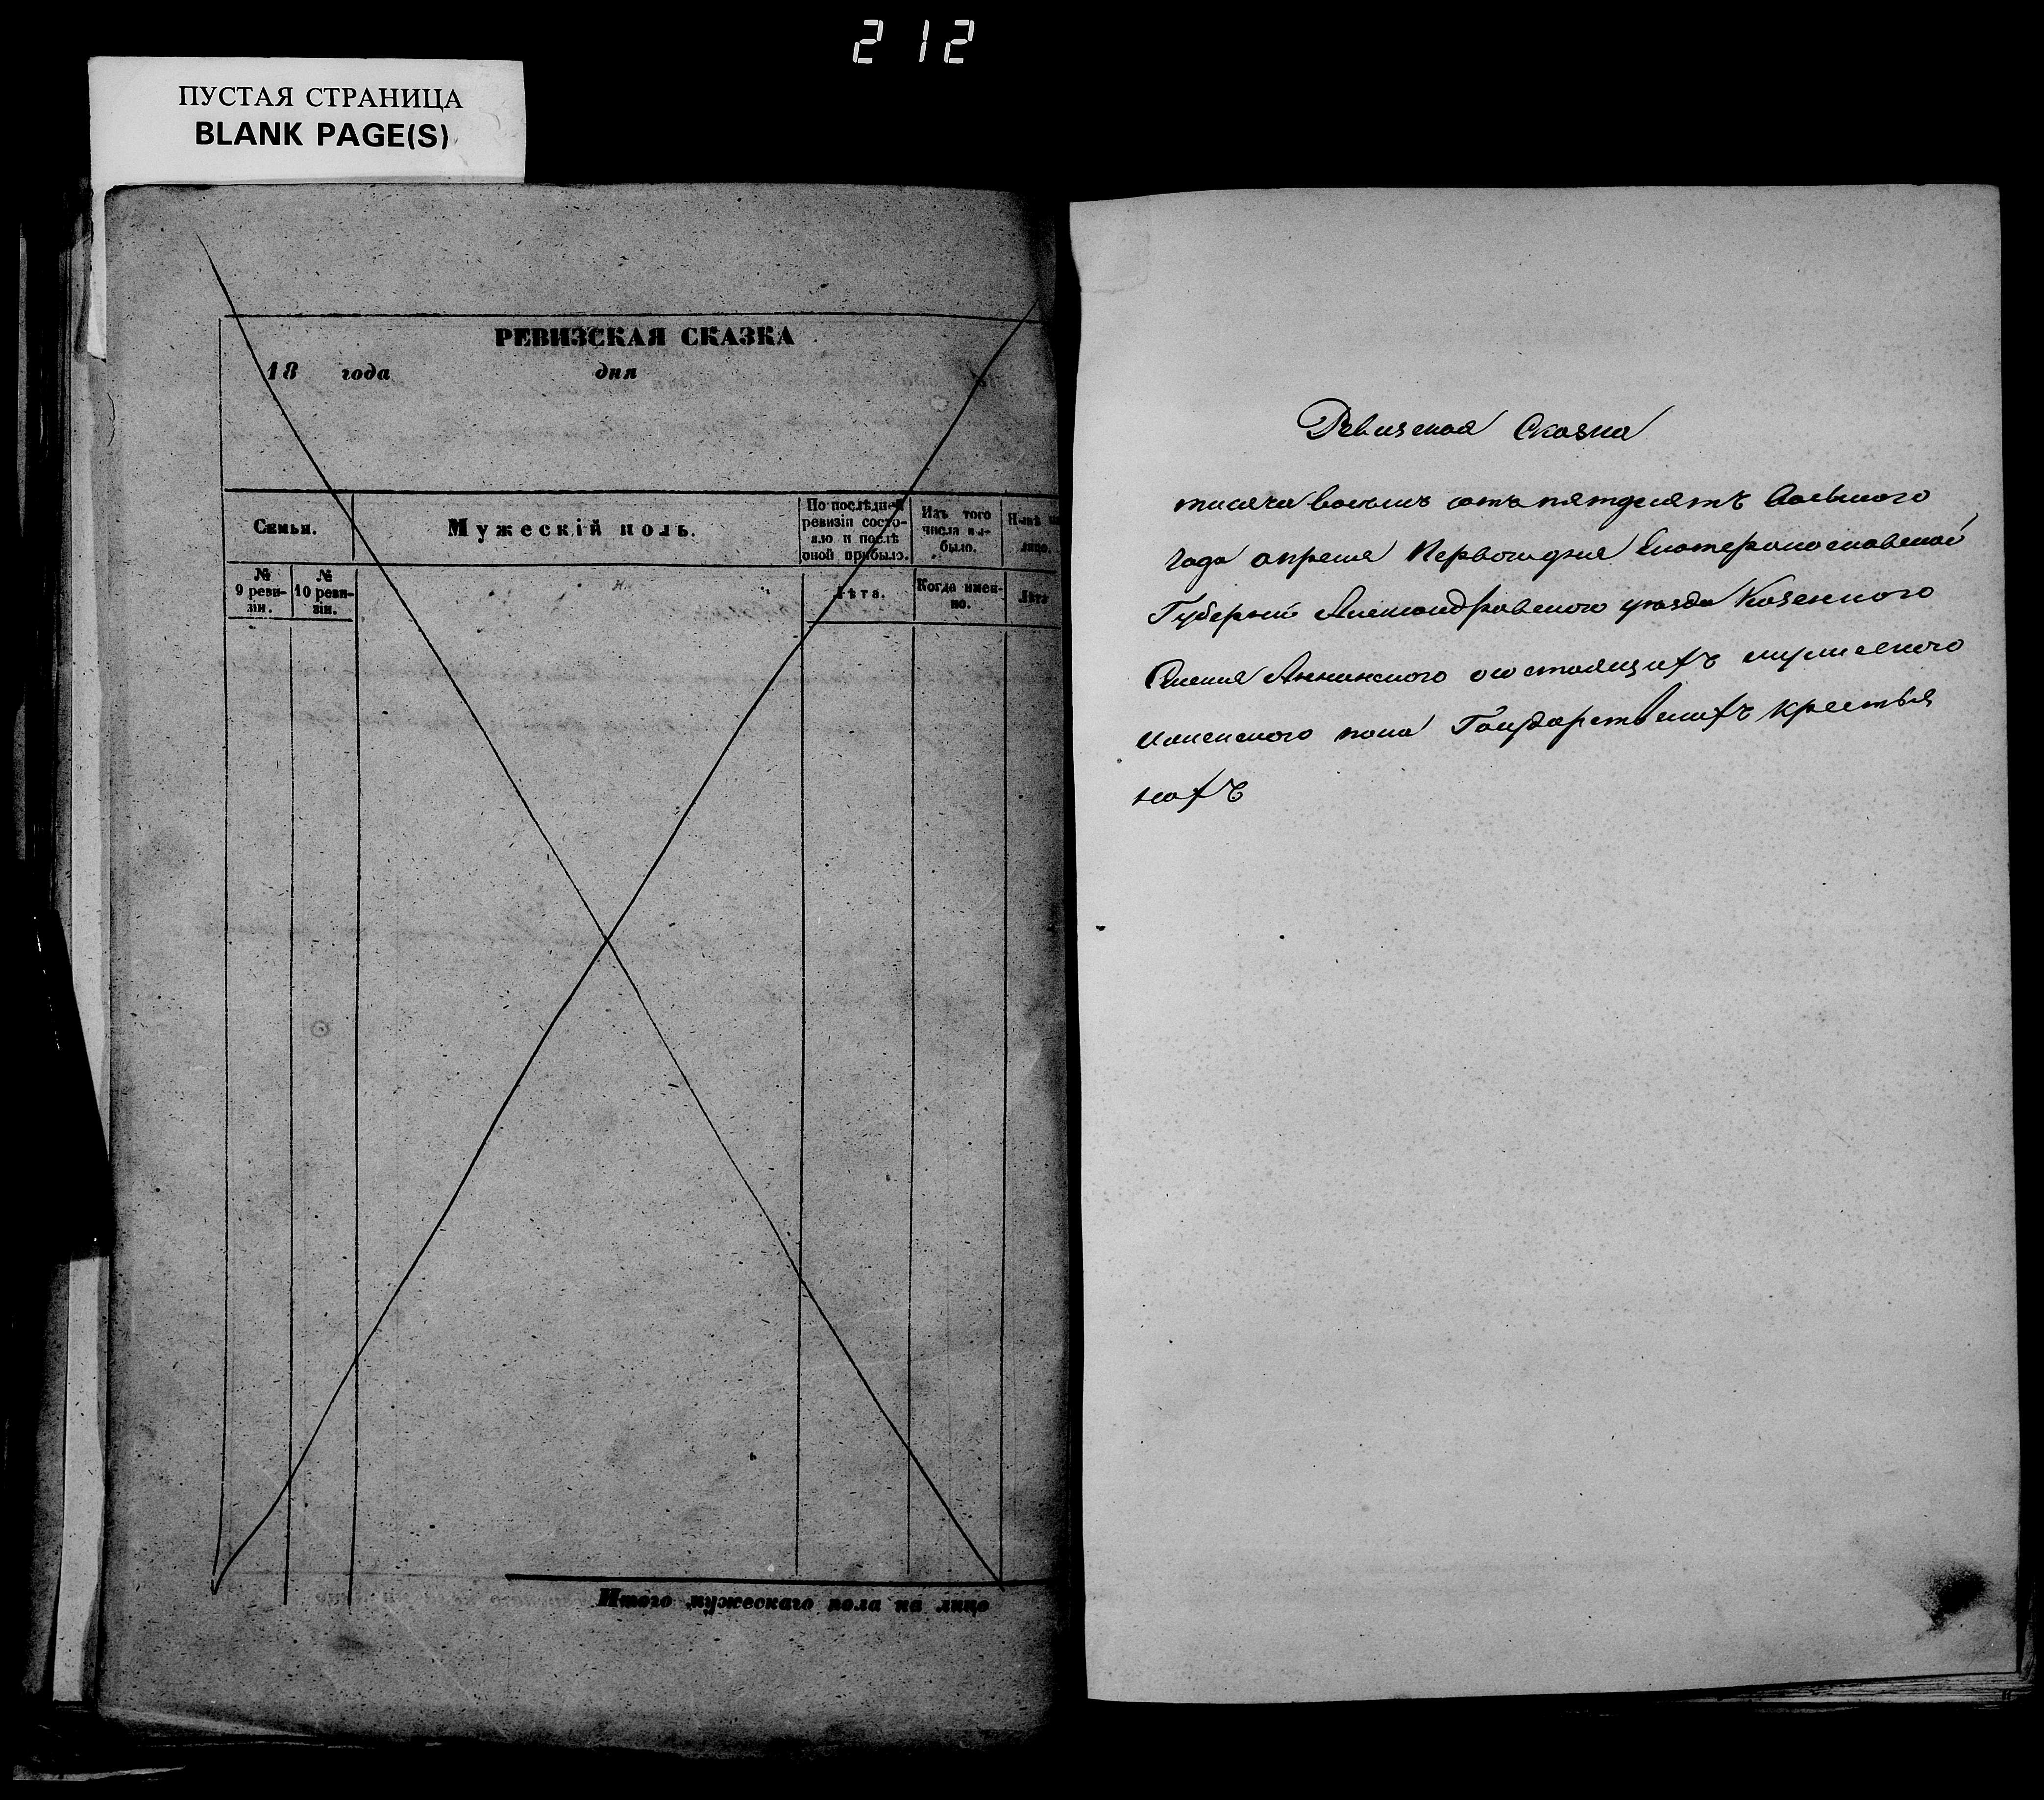 212
ПУСТАЯ СТРАНИЦА
BLANK PAGE(S)
РЕВИЗСКАЯ СКАЗКА
18 года дня
Семьи.
Мужескій полъ.
По послѣдней ревизіи состояло и послѣ оной прибыло.
Изъ того числа выбыло.
Нынѣ на лицо.
№ 9 ревизіи.
№ 10 ревизіи.
Лѣта.
Когда именно.
Лѣта
Итого мужескаго пола на лицо
Ревизская Сказка
тисяча восемъ сотъ пятдесятъ восьмого
года апреля Первогодня Екатеринославской
Губерніи Александровского уезда Казенного
Селения Аннинского состоящихъ мужеского
женского пола Государственихъ крестья
нахъ